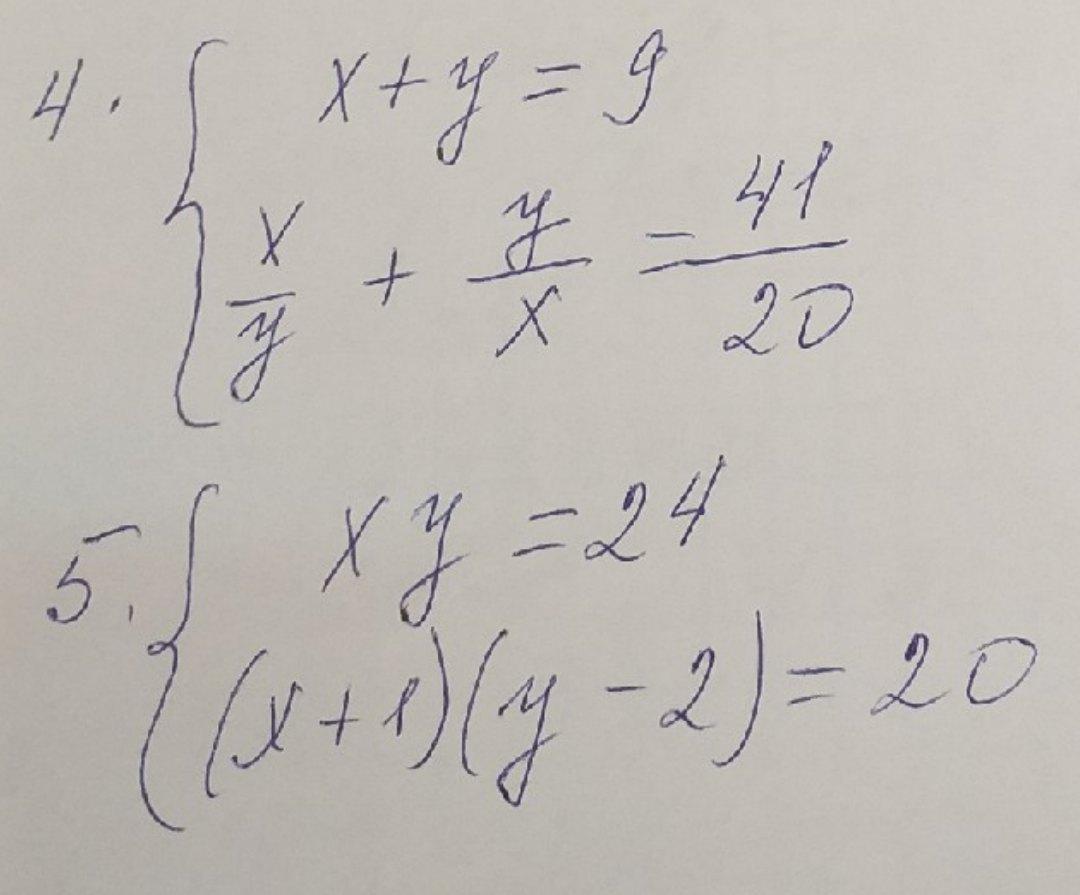 4. { x + y = 9
x/y + y/x = 41/20
5. { xy = 24
(x+1)(y-2) = 20